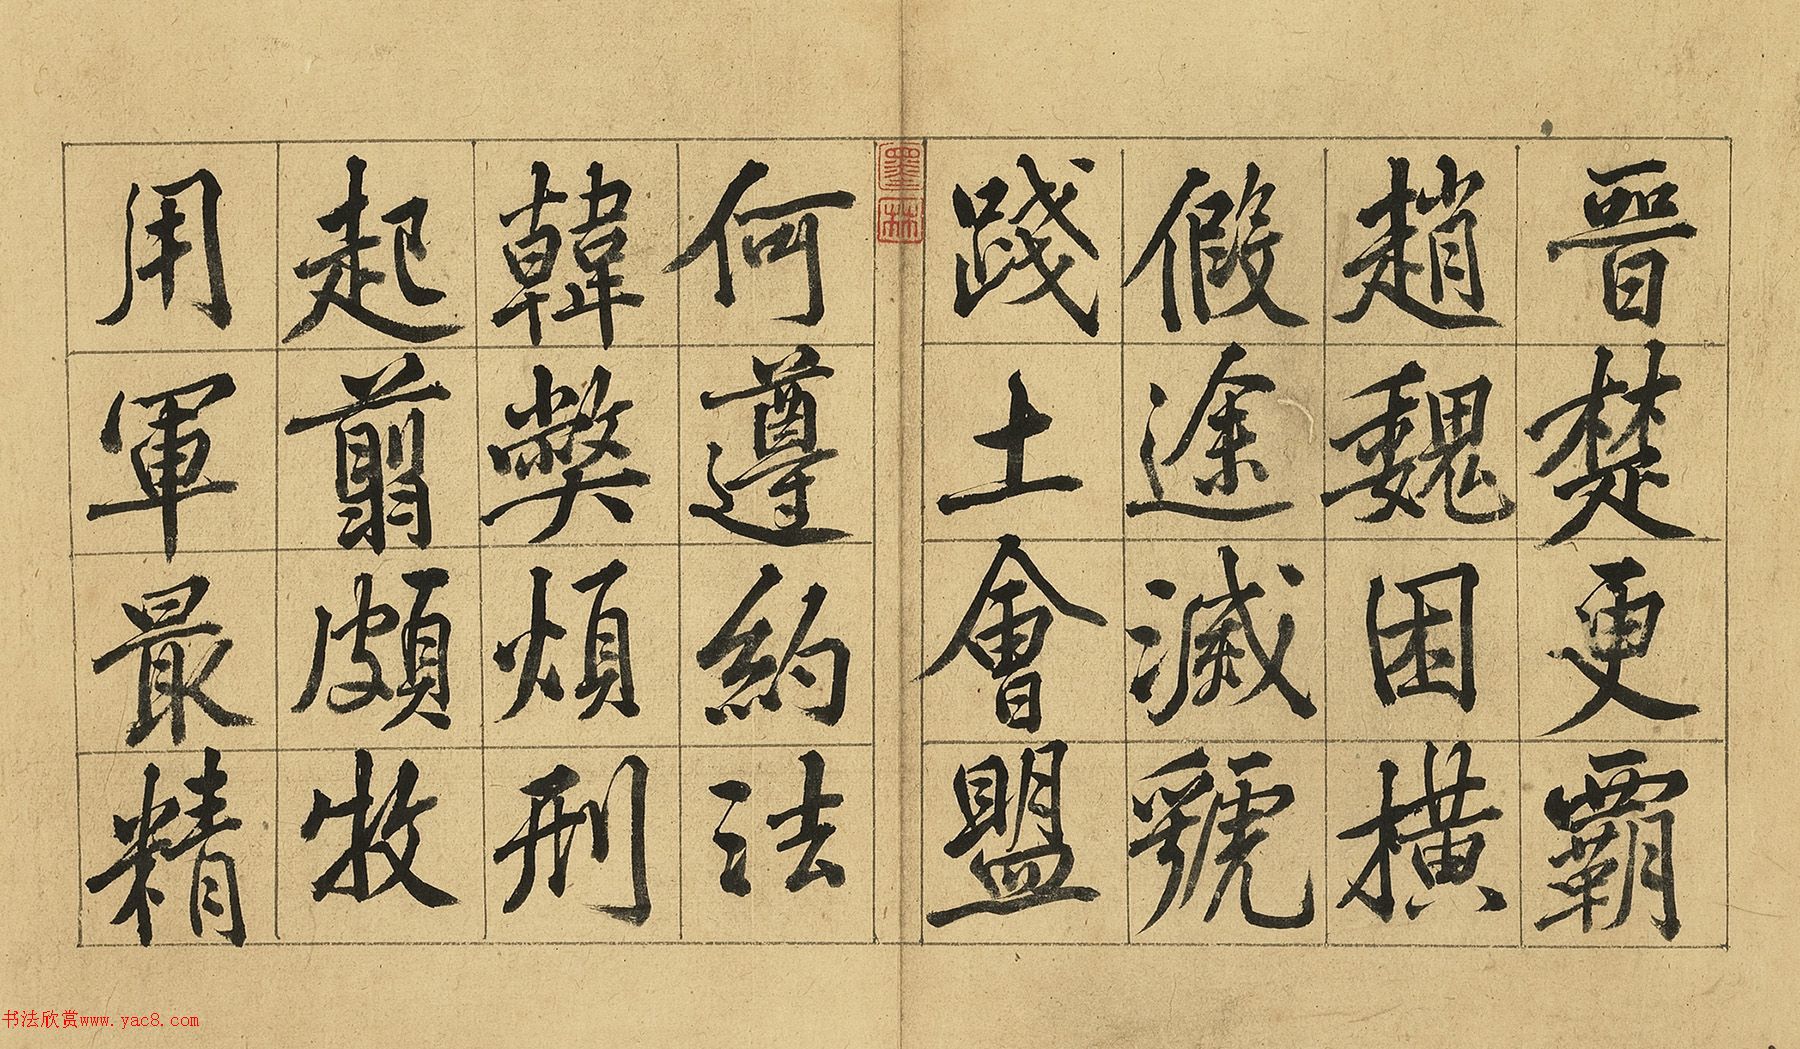 晉楚更霸
趙魏困橫
假途滅虢
踐土會盟
何遵約法
韓弊煩刑
起翦頗牧
用軍最精
墨林
书法欣赏www.yac8.com